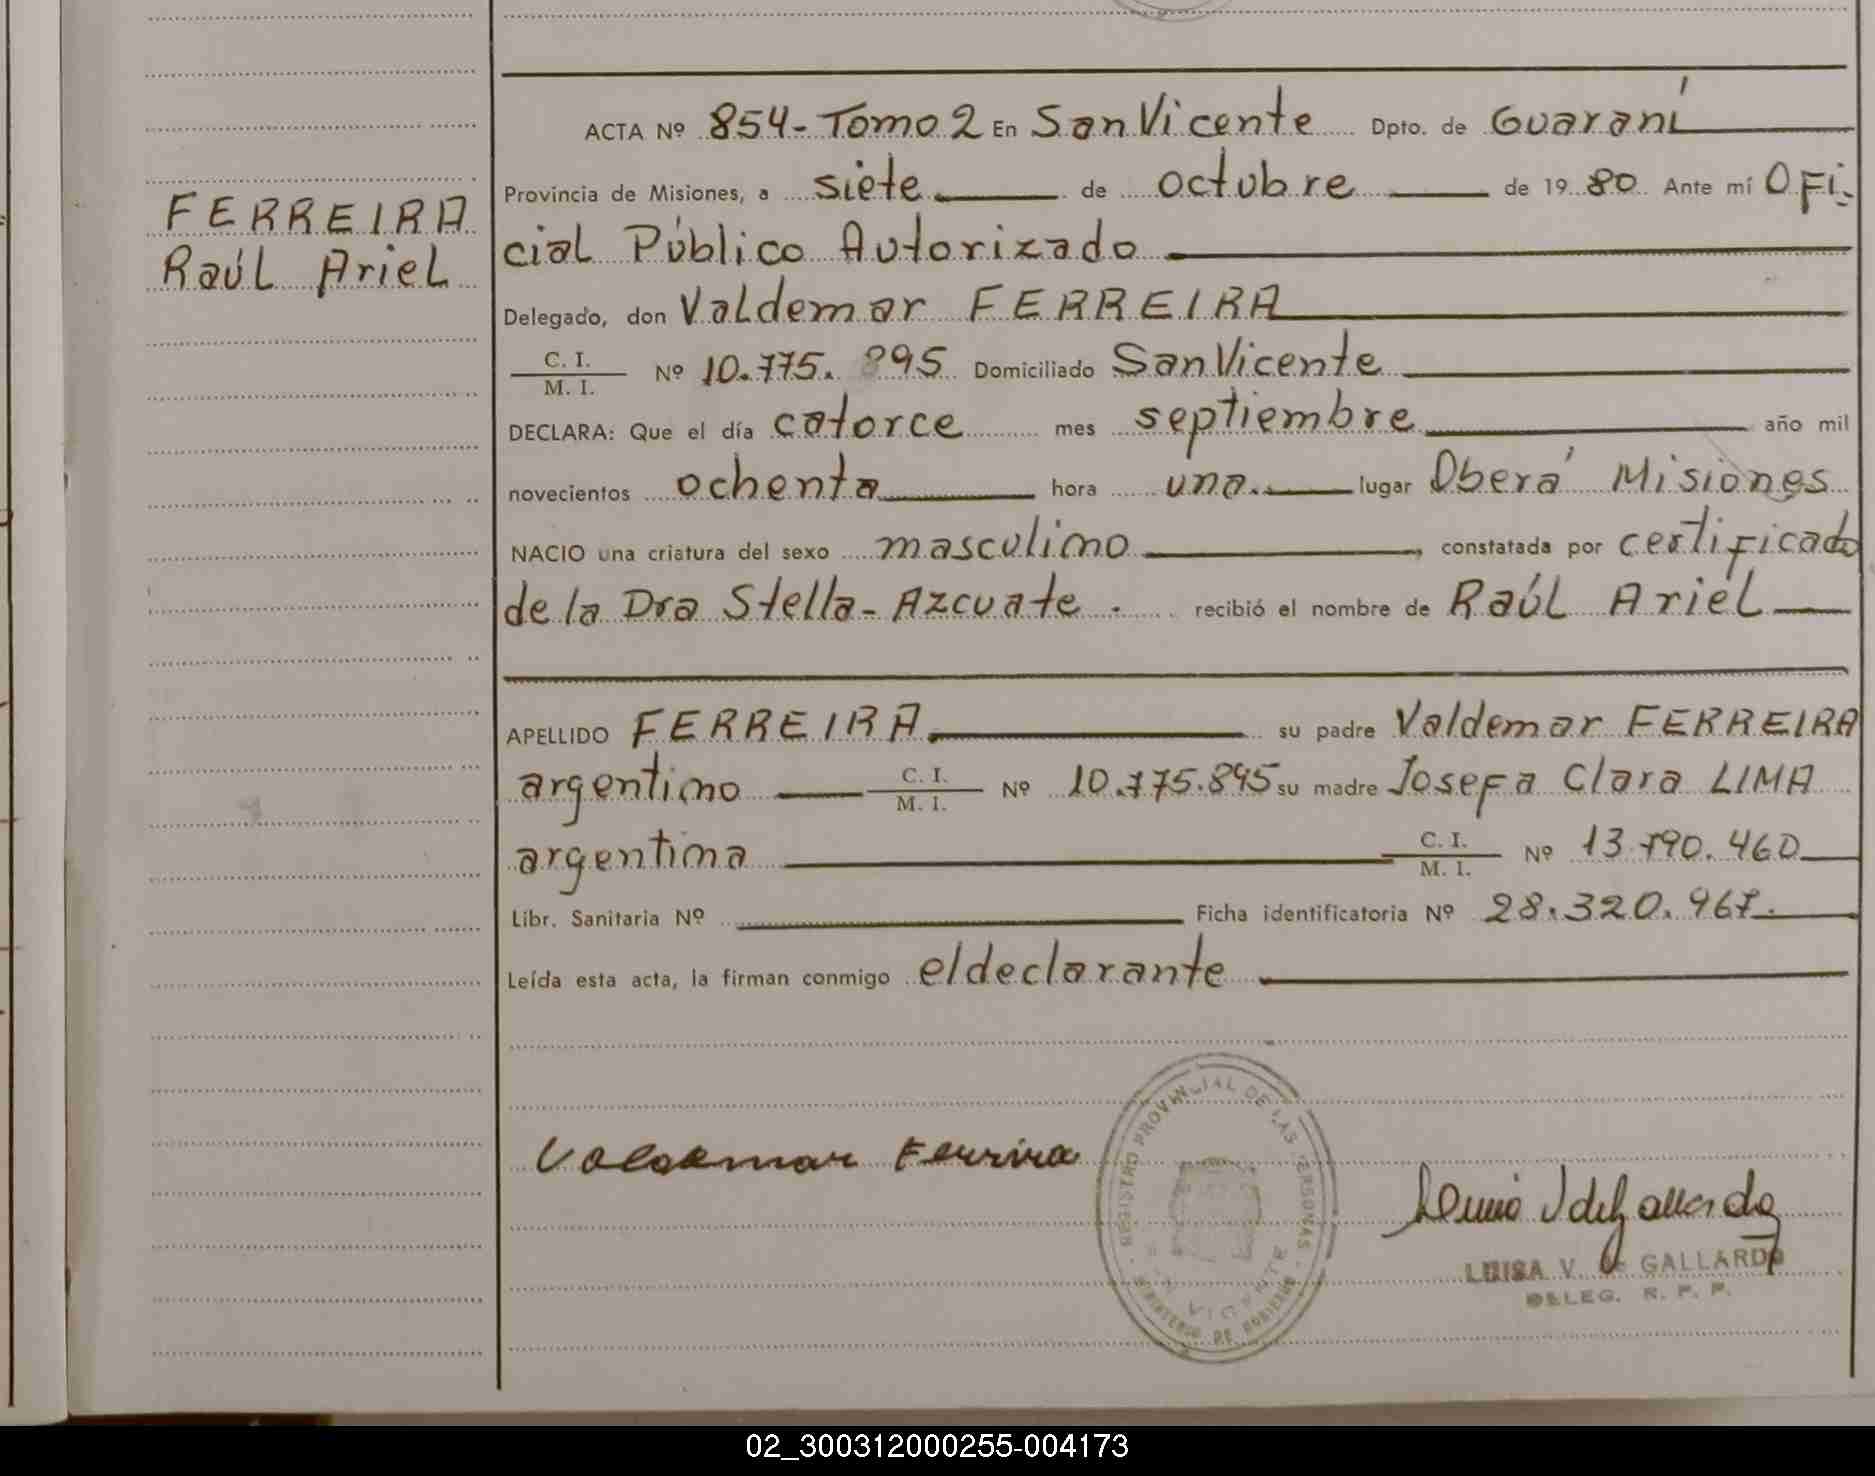 FERREIRA
Raúl Ariel
ACTA Nº 854-Tomo 2 En San Vicente Dpto. de Guaraní
Provincia de Misiones, a siete de octubre de 19 80 Ante mí Ofi-
cial Público Autorizado
Delegado, don Valdemar FERREIRA
C. I.
M. I. Nº 10.775.895 Domiciliado San Vicente
DECLARA: Que el día catorce mes septiembre año mil
novecientos ochenta hora una. lugar Oberá Misiones
NACIO una criatura del sexo masculino, constatada por certificado
de la Dra Stella-Azcuate. recibió el nombre de Raúl Ariel
APELLIDO FERREIRA su padre Valdemar FERREIRA
argentino C. I.
M. I. Nº 10.775.895 su madre Josefa Clara LIMA
argentina C. I.
M. I. Nº 13.790.460
Libr. Sanitaria Nº Ficha identificatoria Nº 28.320.967.
Leída esta acta, la firman conmigo el declarante
Valdemar Ferrira
REGISTRO PROVINCIAL DE LAS PERSONAS
SAN VICENTE
MINISTERIO DE GOBIERNO
LUISA V. de GALLARDO
DELEG. R. P. P.
02_300312000255-004173